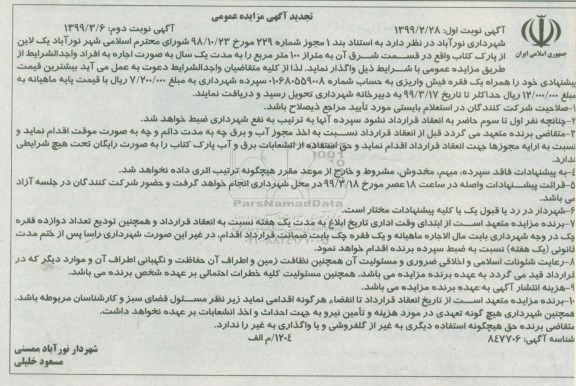 تجدید آگهی مزایده عمومی
آگهی نوبت اول: ۱۳۹۹/۲/۲۸
آگهی نوبت دوم: ۱۳۹۹/۳/۶
جمهوری اسلامی ایران
شهرداری نورآباد در نظر دارد به استناد بند ۱ مجوز شماره ۲۲۹ مورخ ۹۸/۱۰/۲۳ شورای محترم اسلامی شهر نورآباد یک لاین
از پارک کتاب واقع در قسمت شرق آن به متراژ ۱۰۰ متر مربع را به مدت یک سال به صورت اجاره به افراد واجدالشرایط از
طریق مزایده عمومی با شرایط ذیل واگذار نماید. لذا از کلیه متقاضیان واجدالشرایط دعوت به عمل می آید بیشترین قیمت
پیشنهادی خود را همراه یک فقره فیش واریزی به حساب شماره ۰۱۰۶۸۰۵۵۹۰۰۸ سپرده شهرداری به مبلغ ۷/۲۰۰/۰۰۰ ریال با قیمت پایه ماهیانه به
مبلغ ۱۲/۰۰۰/۰۰۰ ریال حداکثر تا تاریخ ۹۹/۳/۱۷ به دبیرخانه شهرداری تحویل رسید و دریافت نمایند.
۱-صلاحیت شرکت کنندگان در استعلام بایستی مورد تأیید مراجع ذیصلاح باشد.
۲-چنانچه نفر اول تا سوم حاضر به انعقاد قرارداد نشود سپرده آنها به ترتیب به نفع شهرداری ضبط خواهد شد.
۳-متقاضی برنده متعهد می گردد قبل از انعقاد قرارداد نسبت به اخذ مجوز آب و برق چه به مدت دائم و چه به صورت موقت اقدام نماید و
نسبت به ارایه مجوزها جهت انعقاد قرارداد اقدام نماید و حق استفاده از انشعابات برق و آب پارک کتاب را به صورت رایگان تحت هیچ شرایطی
ندارد.
۴-به پیشنهادات فاقد سپرده، مبهم، مخدوش، مشروط و خارج از موعد مقرر هیچگونه ترتیب اثری داده نخواهد شد.
۵-قرائت پیشنهادات واصله در ساعت ۱۸ عصر مورخ ۹۹/۳/۱۸ در محل شهرداری انجام خواهد گرفت و حضور شرکت کنندگان در جلسه آزاد
می باشد.
۶-شهردار در رد یا قبول یک یا کلیه پیشنهادات مختار است.
۷-برنده مزایده متعهد است از ابتدای وقت اداری تاریخ ابلاغ به مدت یک هفته نسبت به انعقاد قرارداد و همچنین تودیع تعداد دوازده فقره
چک در وجه شهرداری بابت مال الاجاره ماهیانه و یک فقره چک بابت ضمانت قرارداد اقدام، در غیر این صورت شهرداری راسا پس از ختم مدت
قانونی (یک هفته) نسبت به ضبط سپرده برنده اقدام خواهد نمود.
۸-رعایت شئونات اسلامی و اخلاقی ضروری و مسئولیت آن همچنین نظافت زمین و اطراف آن حفاظت و نگهبانی اطراف آن و موارد دیگر که در
قرارداد قید می گردد به عهده برنده مزایده می باشد. همچنین مسئولیت کلیه خطرات احتمالی بر عهده شخص برنده می باشد.
۹-هزینه انتشار آگهی به عهده برنده مزایده می باشد.
۱۰-برنده مزایده متعهد است از تاریخ انعقاد قرارداد تا انقضاء هرگونه اقدامی نماید زیر نظر مسئول فضای سبز و کارشناسان مربوطه باشد.
همچنین شهرداری هیچ گونه تعهدی در مورد هزینه و تأمین نیرو به جهت احداث و اخذ انشعابات بر عهده نخواهد داشت.
متقاضی برنده حق هیچگونه استفاده دیگری به غیر از گلفروشی و یا واگذاری به غیر را ندارد.
شناسه آگهی: ۸۴۷۷۰۶
۱۲۰۴/م الف
شهردار نورآباد ممسنی
مسعود خلیلی
ParsNamadData